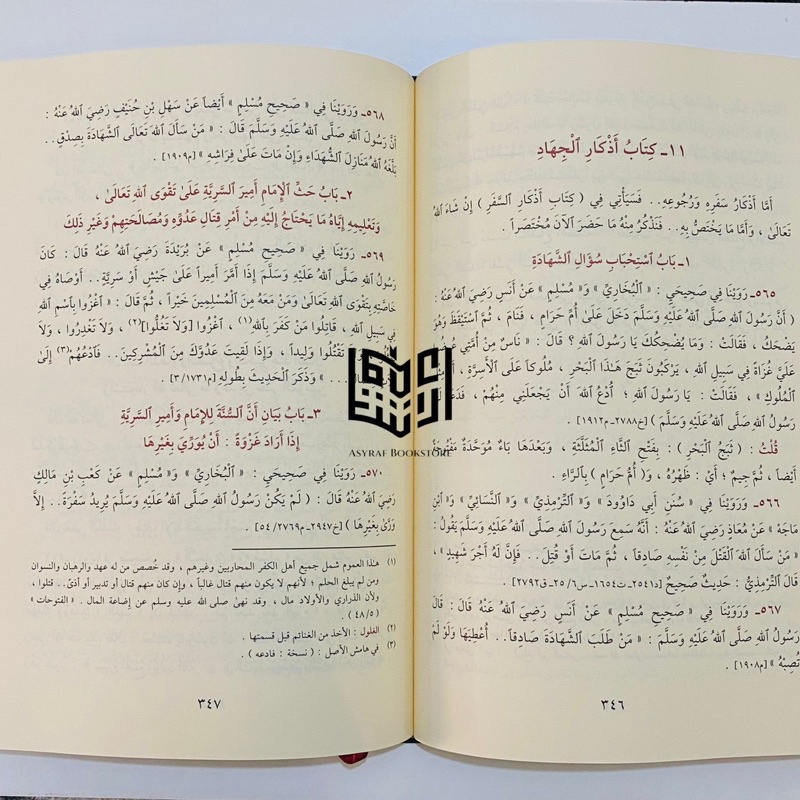 ١١ـ كِتَابُ أَذْكَارِ ٱلْجِهَادِ
أَمَّا أَذْكَارُ سَفَرِهِ وَرُجُوعِهِ.. فَسَيَأْتِي فِي ( كِتَابِ أَذْكَارِ ٱلسَّفَرِ ) إِنْ شَاءَ ٱللهُ
تَعَالَىٰ ، وَأَمَّا مَا يَخْتَصُّ بِهِ.. فَنَذْكُرُ مِنْهُ مَا حَضَرَ ٱلآنَ مُخْتَصَراً .
١ـ بَابُ ٱسْتِحْبَابِ سُؤَالِ ٱلشَّهَادَةِ
٥٦٥ـ رَوَيْنَا فِي صَحِيحَيِ : « ٱلْبُخَارِيِّ » وَ« مُسْلِمٍ » عَنْ أَنَسٍ رَضِيَ ٱللهُ عَنْهُ :
( أَنَّ رَسُولَ ٱللهِ صَلَّى ٱللهُ عَلَيْهِ وَسَلَّمَ دَخَلَ عَلَىٰ أُمِّ حَرَامٍ ، فَنَامَ ، ثُمَّ ٱسْتَيْقَظَ وَهُوَ
يَضْحَكُ ، فَقَالَتْ : وَمَا يُضْحِكُكَ يَا رَسُولَ ٱللهِ ؟ قَالَ : « نَاسٌ مِنْ أُمَّتِي عُرِضُوا
عَلَيَّ غُزَاةً فِي سَبِيلِ ٱللهِ ، يَرْكَبُونَ ثَبَجَ هَـٰذَا ٱلْبَحْرِ ، مُلُوكاً عَلَى ٱلأَسِرَّةِ ، أَوْ مِثْلَ
ٱلْمُلُوكِ » ، فَقَالَتْ : يَا رَسُولَ ٱللهِ ؛ ٱدْعُ ٱللهَ أَنْ يَجْعَلَنِي مِنْهُمْ ، فَدَعَا لَهَا
رَسُولُ ٱللهِ صَلَّى ٱللهُ عَلَيْهِ وَسَلَّمَ ) [خ٢٧٨٨ـ م١٩١٢] .
قُلْتُ : ( ثَبَجُ ٱلْبَحْرِ ) : بِفَتْحِ ٱلثَّاءِ ٱلْمُثَلَّثَةِ ، وَبَعْدَهَا بَاءٌ مُوَحَّدَةٌ مَفْتُوحَةٌ
أَيْضاً ، ثُمَّ جِيمٌ ؛ أَيْ : ظَهْرُهُ ، وَ( أُمُّ حَرَامٍ ) بِٱلرَّاءِ .
٥٦٦ـ وَرَوَيْنَا فِي « سُنَنِ أَبِي دَاوُودَ » وَ« ٱلتِّرْمِذِيِّ » وَ« ٱلنَّسَائِيِّ » وَ« ٱبْنِ
مَاجَهْ » عَنْ مُعَاذٍ رَضِيَ ٱللهُ عَنْهُ : أَنَّهُ سَمِعَ رَسُولَ ٱللهِ صَلَّى ٱللهُ عَلَيْهِ وَسَلَّمَ يَقُولُ :
« مَنْ سَأَلَ ٱللهَ ٱلْقَتْلَ مِنْ نَفْسِهِ صَادِقاً ، ثُمَّ مَاتَ أَوْ قُتِلَ.. فَإِنَّ لَهُ أَجْرَ شَهِيدٍ » ،
قَالَ ٱلتِّرْمِذِيُّ : حَدِيثٌ صَحِيحٌ [د٢٥٤١ـ ت١٦٥٤ـ س٢٥/٦ـ ق٢٧٩٢] .
٥٦٧ـ وَرَوَيْنَا فِي « صَحِيحِ مُسْلِمٍ » عَنْ أَنَسٍ رَضِيَ ٱللهُ عَنْهُ قَالَ : قَالَ
رَسُولُ ٱللهِ صَلَّى ٱللهُ عَلَيْهِ وَسَلَّمَ : « مَنْ طَلَبَ ٱلشَّهَادَةَ صَادِقاً.. أُعْطِيَهَا وَلَوْ لَمْ
تُصِبْهُ » [م١٩٠٨] .
٣٤٦
٥٦٨ـ وَرَوَيْنَا فِي « صَحِيحِ مُسْلِمٍ » أَيْضاً عَنْ سَهْلِ بْنِ حُنَيْفٍ رَضِيَ ٱللهُ عَنْهُ :
أَنَّ رَسُولَ ٱللهِ صَلَّى ٱللهُ عَلَيْهِ وَسَلَّمَ قَالَ : « مَنْ سَأَلَ ٱللهَ تَعَالَى ٱلشَّهَادَةَ بِصِدْقٍ..
بَلَّغَهُ ٱللهُ مَنَازِلَ ٱلشُّهَدَاءِ وَإِنْ مَاتَ عَلَىٰ فِرَاشِهِ » [م١٩٠٩] .
٢ـ بَابُ حَثِّ ٱلإِمَامِ أَمِيرَ ٱلسَّرِيَّةِ عَلَىٰ تَقْوَى ٱللهِ تَعَالَىٰ ،
وَتَعْلِيمِهِ إِيَّاهُ مَا يَحْتَاجُ إِلَيْهِ مِنْ أَمْرِ قِتَالِ عَدُوِّهِ وَمُصَالَحَتِهِمْ وَغَيْرِ ذَلِكَ
٥٦٩ـ رَوَيْنَا فِي « صَحِيحِ مُسْلِمٍ » عَنْ بُرَيْدَةَ رَضِيَ ٱللهُ عَنْهُ قَالَ : كَانَ
رَسُولُ ٱللهِ صَلَّى ٱللهُ عَلَيْهِ وَسَلَّمَ إِذَا أَمَّرَ أَمِيراً عَلَىٰ جَيْشٍ أَوْ سَرِيَّةٍ.. أَوْصَاهُ فِي
خَاصَّتِهِ بِتَقْوَى ٱللهِ تَعَالَىٰ وَمَنْ مَعَهُ مِنَ ٱلْمُسْلِمِينَ خَيْراً ، ثُمَّ قَالَ : « ٱغْزُوا بِٱسْمِ ٱللهِ
فِي سَبِيلِ ٱللهِ ، قَاتِلُوا مَنْ كَفَرَ بِٱللهِ(١) ، ٱغْزُوا [وَلاَ تَغُلُّوا](٢) ، وَلاَ تَغْدِرُوا ، وَلاَ
تَقْتُلُوا وَلِيداً ، وَإِذَا لَقِيتَ عَدُوَّكَ مِنَ ٱلْمُشْرِكِينَ.. فَٱدْعُهُمْ(٣) إِلَىٰ
... » وَذَكَرَ ٱلْحَدِيثَ بِطُولِهِ [م٣/١٧٣١] .
٣ـ بَابُ بَيَانِ أَنَّ ٱلسُّنَّةَ لِلإِمَامِ وَأَمِيرِ ٱلسَّرِيَّةِ
إِذَا أَرَادَ غَزْوَةً : أَنْ يُوَرِّيَ بِغَيْرِهَا
٥٧٠ـ رَوَيْنَا فِي صَحِيحَيِ : « ٱلْبُخَارِيِّ » وَ« مُسْلِمٍ » عَنْ كَعْبِ بْنِ مَالِكٍ
رَضِيَ ٱللهُ عَنْهُ قَالَ : ( لَمْ يَكُنْ رَسُولُ ٱللهِ صَلَّى ٱللهُ عَلَيْهِ وَسَلَّمَ يُرِيدُ سَفْرَةً.. إِلاَّ
وَرَّىٰ بِغَيْرِهَا ) [خ٢٩٤٧ـ م٥٤/٢٧٦٩] .
(١) هذا العموم شمل جميع أهل الكفر المحاربين وغيرهم ، وقد خُصص من له عهد والرهبان والنسوان
ومن لم يبلغ الحلم ؛ لأنهم لا يكون منهم قتال غالباً ، وإن كان منهم قتال أو تدبير أو أذى.. قتلوا ،
ولأن الذراري والأولاد مال ، وقد نهى صلى الله عليه وسلم عن إضاعة المال . « الفتوحات »
( ٤٨/٥ ) .
(٢) الغلول : الأخذ من الغنائم قبل قسمتها .
(٣) في هامش الأصل : ( نسخة : فادعه ) .
٣٤٧
ASYRAF BOOKSTORE